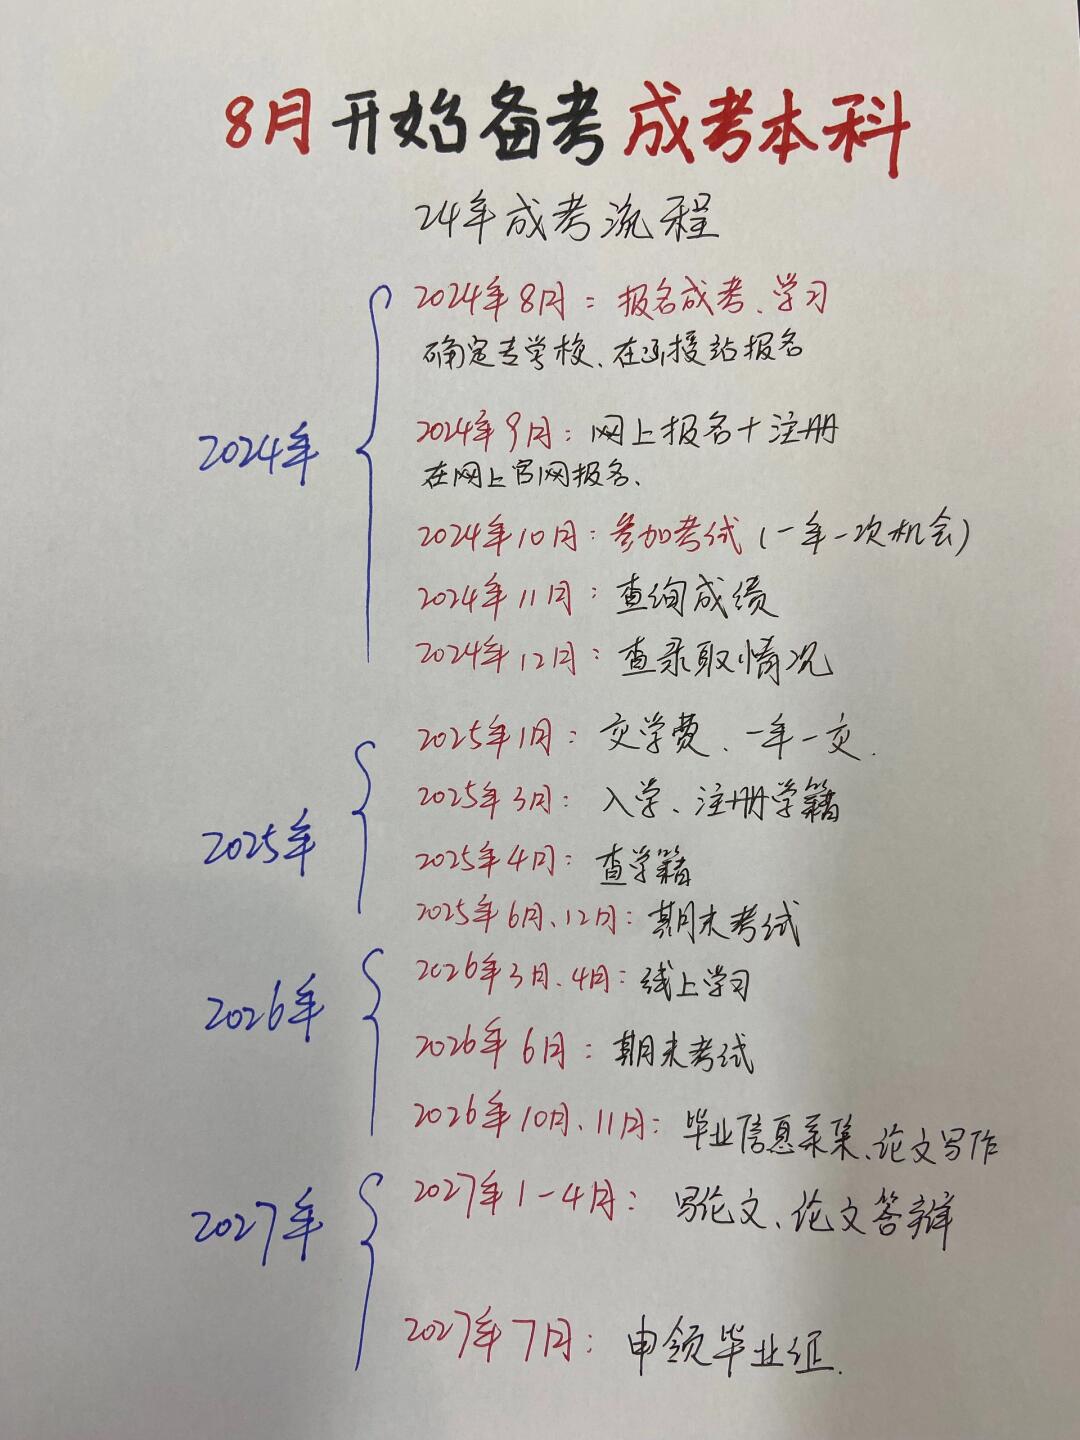 8月开始备考成考本科
24年成考流程
2024年
2024年8月：报名成考、学习
确定专学校、在函授站报名
2024年9月：网上报名+注册
在网上官网报名、
2024年10月：参加考试(一年一次机会)
2024年11月：查询成绩
2024年12月：查录取情况
2025年
2025年1月：交学费、一年一交.
2025年3月：入学、注册学籍
2025年4月：查学籍
2025年6月、12月：期末考试
2026年
2026年3月、4月：线上学习
2026年6月：期末考试
2026年10月、11月：毕业信息采集、论文写作
2027年
2027年1-4月：写论文、论文答辩
2027年7月：申领毕业证.